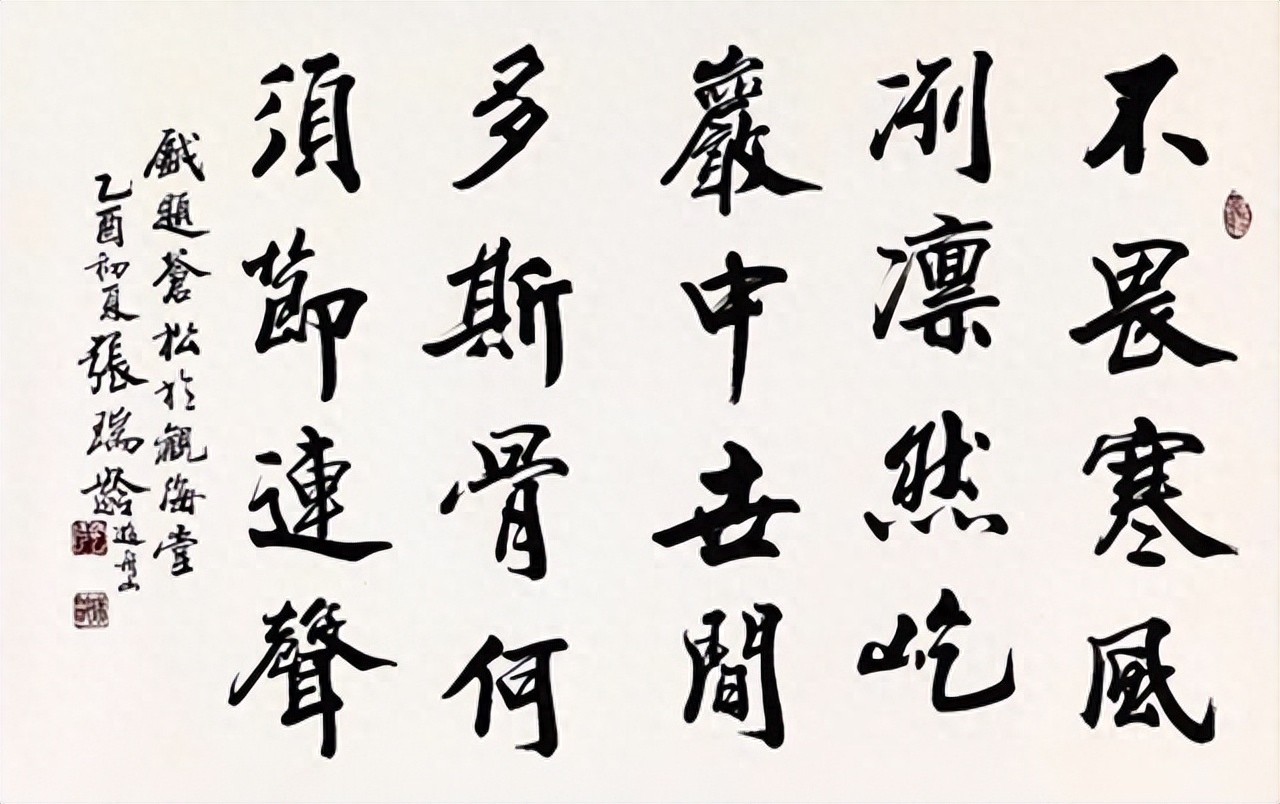 不畏寒風
冽凛然屹
巖中世間
多斯骨何
須節連聲
戲題蒼松於觀海堂
乙酉初夏張瑞齡遊舟山